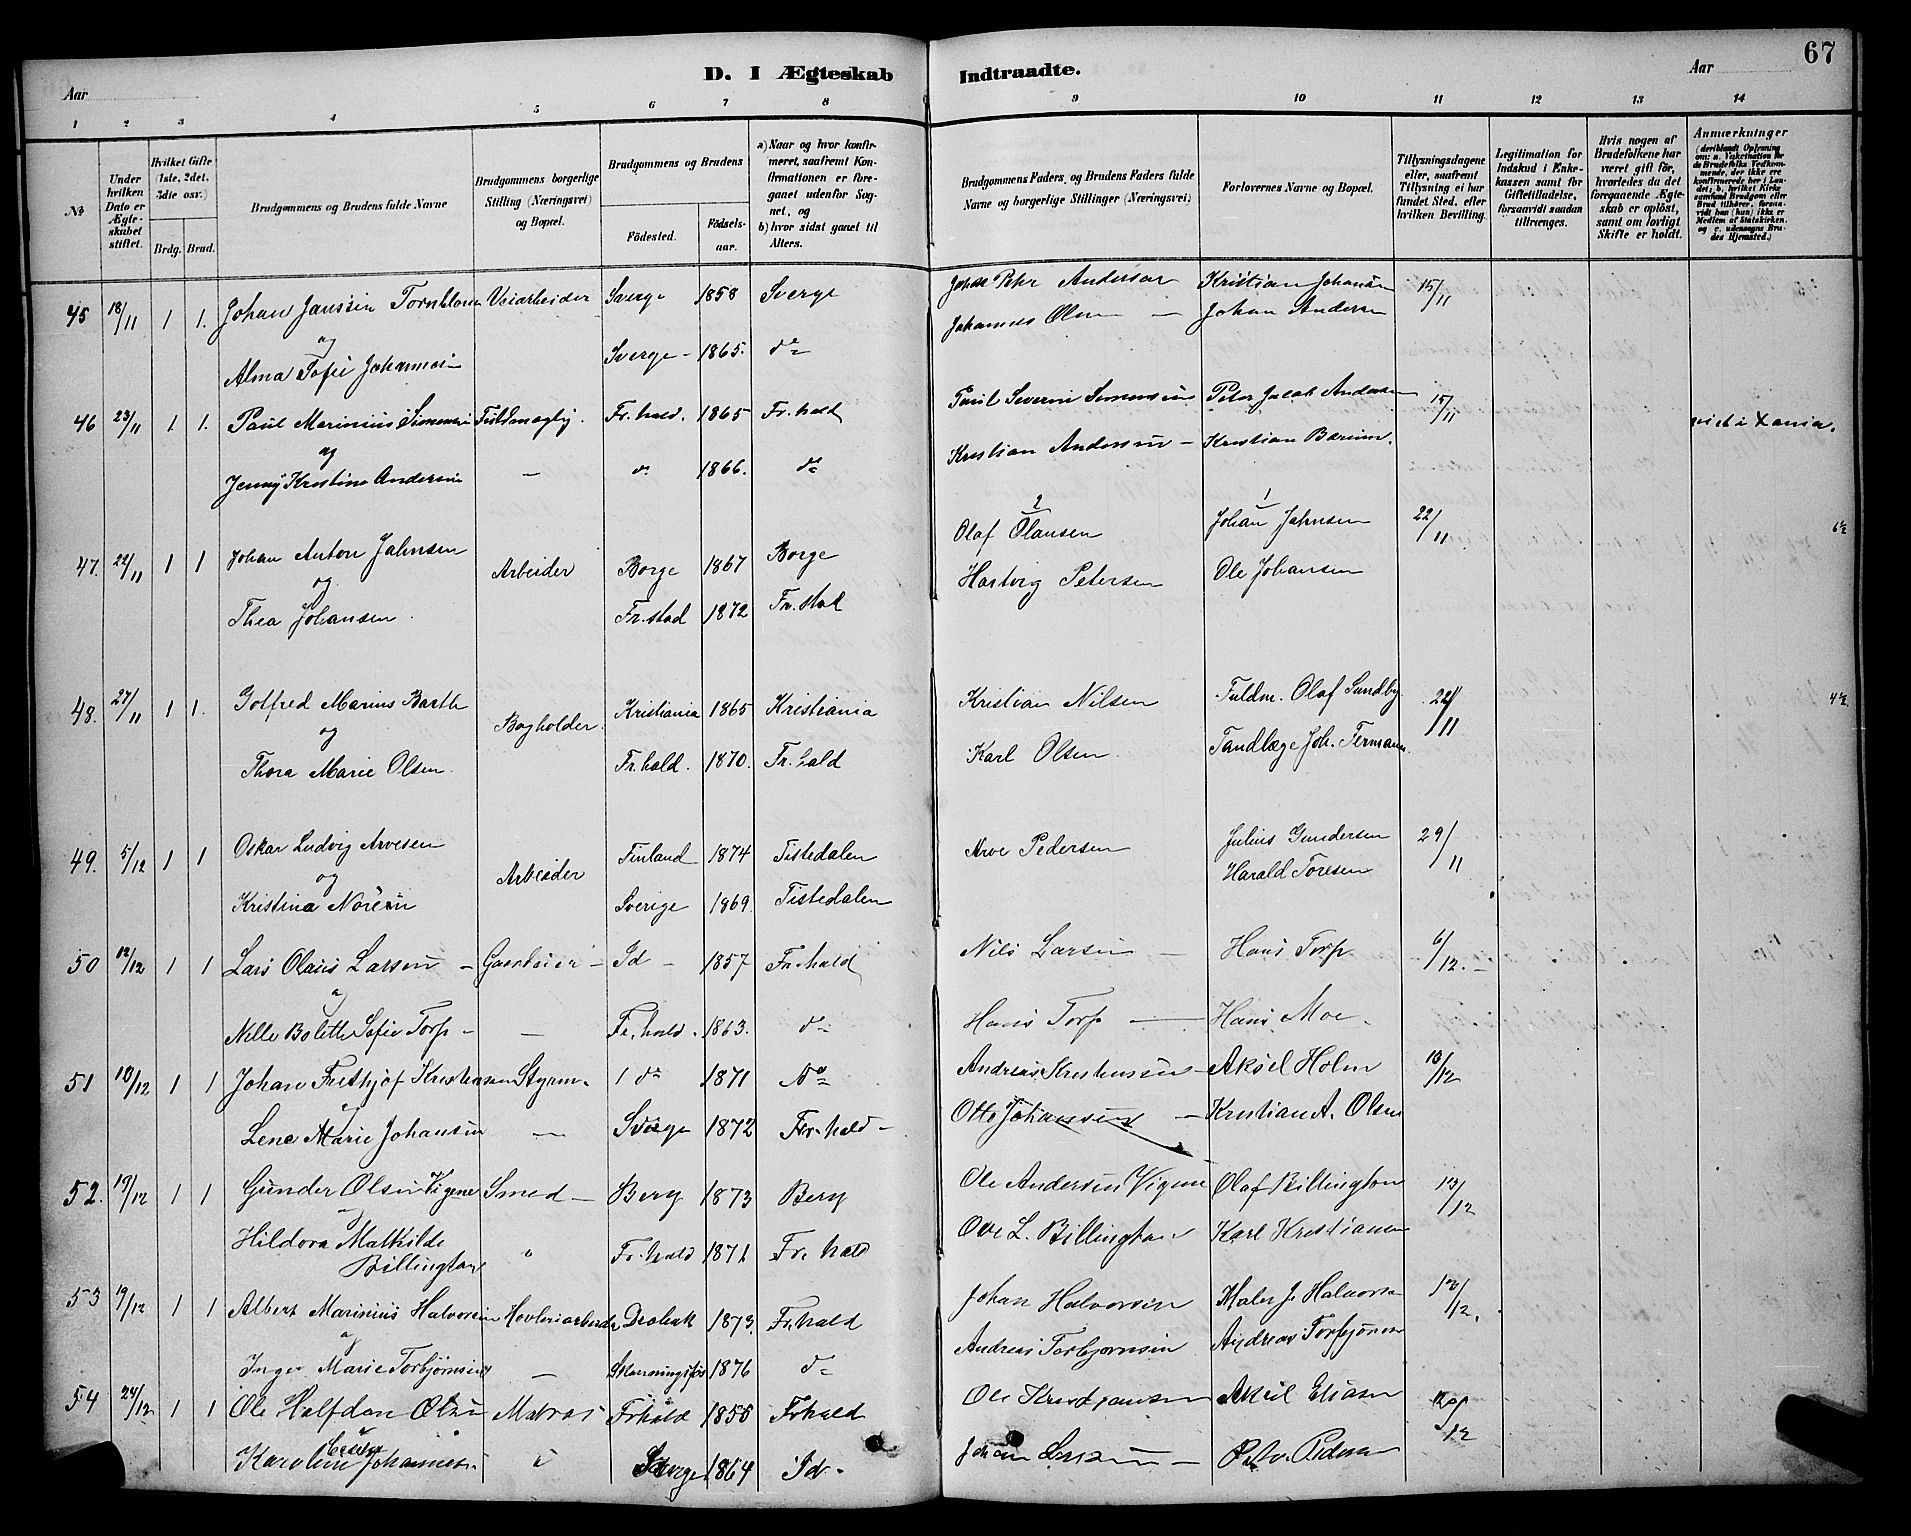 67
D. I Ægteskab Indtraadte.
Aar Aar
1 2 3 4 5 6 7 8 9 10 11 12 13 14
№ Under hvilken Dato er Ægteskabet stiftet. Hvilket Gifte (1ste, 2det, 3die osv.) Brdg. Brud. Brudgommens og Brudens fulde Navne Brudgommens borgerlige Stilling (Næringsvei) og Bopæl. Brudgommens og Brudens Födested. Födselsaar. a) Naar og hvor konfirmeret, saafremt Konfirmationen er foregaaet udenfor Sognet, og b) hvor sidst gaaet til Alters.
Brudgommens Faders og Brudens Faders fulde Navne og borgerlige Stillinger (Næringsvei) Forlovernes Navne og Bopæl. Tillysningsdagene eller, saafremt Tillysning ei har fundet Sted, efter hvilken Bevilling. Legitimation for Indskud i Enkekassen samt for Giftetilladelse, forsaavidt saadan tiltrænges. Hvis nogen af Brudefolkene har været gift før, hvorledes da det foregaaende Ægteskab er oplöst, samt om lovligt Skifte er holdt. Anmærkninger (deriblandt Oplysning om: a. Vakcination for de Brudefolks Vedkommende, der ikke ere konfirmerede her i Landet; b. hvilket Kirkesamfund Brudgom eller Brud tilhører, forsaavidt han (hun) ikke er Medlem af Statskirken, og c. udensogns Brudes Hjemsted.)
45 18/11 1 1. Johan Janssen Tornblom Veiarbeider Sverge 1858 Sverge Johan Petr Anderson Kristian Johansen 15/11
og Johannes Olsen — Johan Andersen
Alma Sofie Johannesen Sverge - 1865. do
46 23/11 1. 1. Paul Marinius Simensen Fr.hald. 1865 Fr.hald Paul Severin Simensen Peter Jacob Andersen 15/11
og Kristian Andersen — Kristian Bærum.
Jenny Kristine Andersen — do 1866. do
47. 22/11 1 1 Johan Anton Jahnsen Arbeider Borge 1867 Borge Olaf Olausen 2 Johan Jahnsen 1 22/11 6½
og Hartvig Petersen Ole Johansen
Thea Johansen. Fr.stad 1872 Fr.stad
48. 27/11 1 1. Gotfred Marius Barth Bogholder Kristiania 1865 Kristiania Kristian Nilsen Fuldm. Olaf Sundby 22/11 4½
og Karl Olsen Tandlæge Joh. Fermann.
Thora Marie Olsen. Fr.hald. 1870. Fr.hald
49. 5/12 1 1 Oskar Ludvig Arvesen Arbeider Finland 1874 Tistedalen Arve Pedersen Julius Gundersen 29/11
og Harald Toresen
Kristina Noreen Sverige 1869 Tistedalen
50 12/12 1 1 Lars Olaus Larsen - Id - 1857 Fr.hald Nils Larsen — Hans Torp 6/12. -
og
Nille Bolette Sofie Torp - — Fr.hald. 1863. do Hans Torp — Hans Moe.
51 13/12 1 1 Johan Frethjof Kristensen Styrm. do 1871 do Andreas Kristensen - Aksel Holm 13/12
Lene Marie Johansen — Sverge 1872 Fr.hald - Otto Johansen — Kristian A. Olsen
52. 19/12 1 1 Gunder Olsen Vigene Smed - Berg 1873 Berg Ole Andersen Vigene Olaf Billington 13/12
og
Hildora Mathilde Billington " Fr.hald 1871 Fr.hald Ove L. Billington Karl Kristiansen
53 19/12 1 1 Albert Marinius Halvorsen Høvleriarbeider Drøbak 1873. Fr.hald Johan Halvorsen Maler J. Halvorsen 13/12.
og
Inger Marie Torbjørnsen — 1876 do Andreas Torbjørnsen Andreas Torbjørnsen
54 24/12 1 1 Ole Halfdan Olsen Matros Fr.hald 1850 Fr.hald Ole Aksel Eliasen 20/12
Karoline Johannes Sverge 1864 Id. Johan — Pedersen